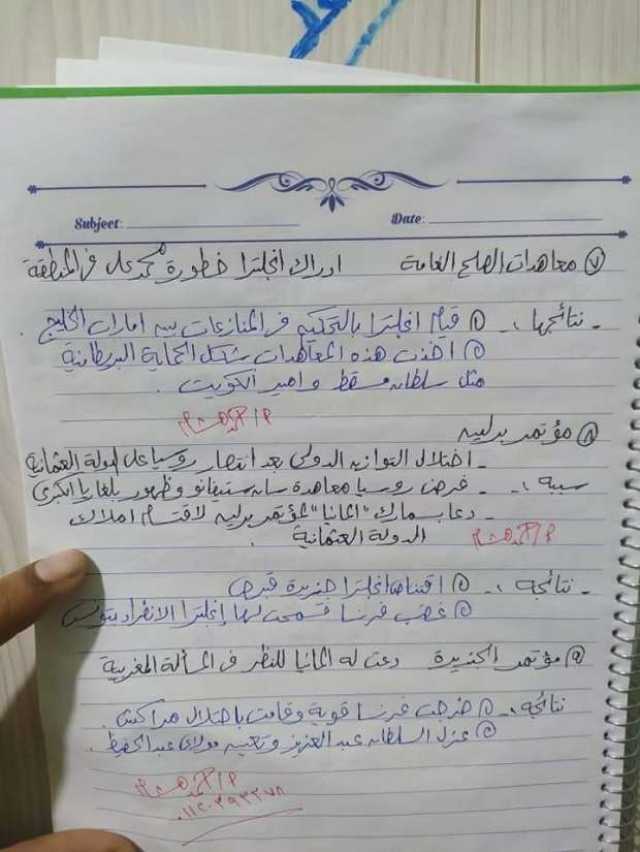 Subject:
Date:
٧ معاهدات الصلح العامة ادراك انجلترا خطورة محمد على فى المنطقة
- نتائجها :- ① قيام انجلترا بالتحكيم فى المنازعات بين امارات الخليج .
② اخذت هذه المعاهدات شكل الحماية البريطانية
مثل سلطان مسقط وامير الكويت .
أ/ أحمد هشام
٨ مؤتمر برلين
- اختلال التوازن الدولى بعد انتصار روسيا على الدولة العثمانية
سببه :- - فرض روسيا معاهدة سان ستيفانو وظهور بلغاريا الكبرى
- دعا بسمارك "المانيا" لمؤتمر برلين لاقتسام املاك
الدولة العثمانية .
أ/ أحمد هشام
- نتائجه :- ① اقتناص انجلترا جزيرة قبرص
② غضب فرنسا فسمحت لها إنجلترا الانفراد بتونس
٩ مؤتمر الجزيرة دعت له المانيا للنظر فى المسألة المغربية
نتائجه :- ① خرجت فرنسا قوية وقامت باحتلال مراكش .
② عزل السلطان عبد العزيز وتعيين مولاى عبد الحفيظ .
أ/ أحمد هشام